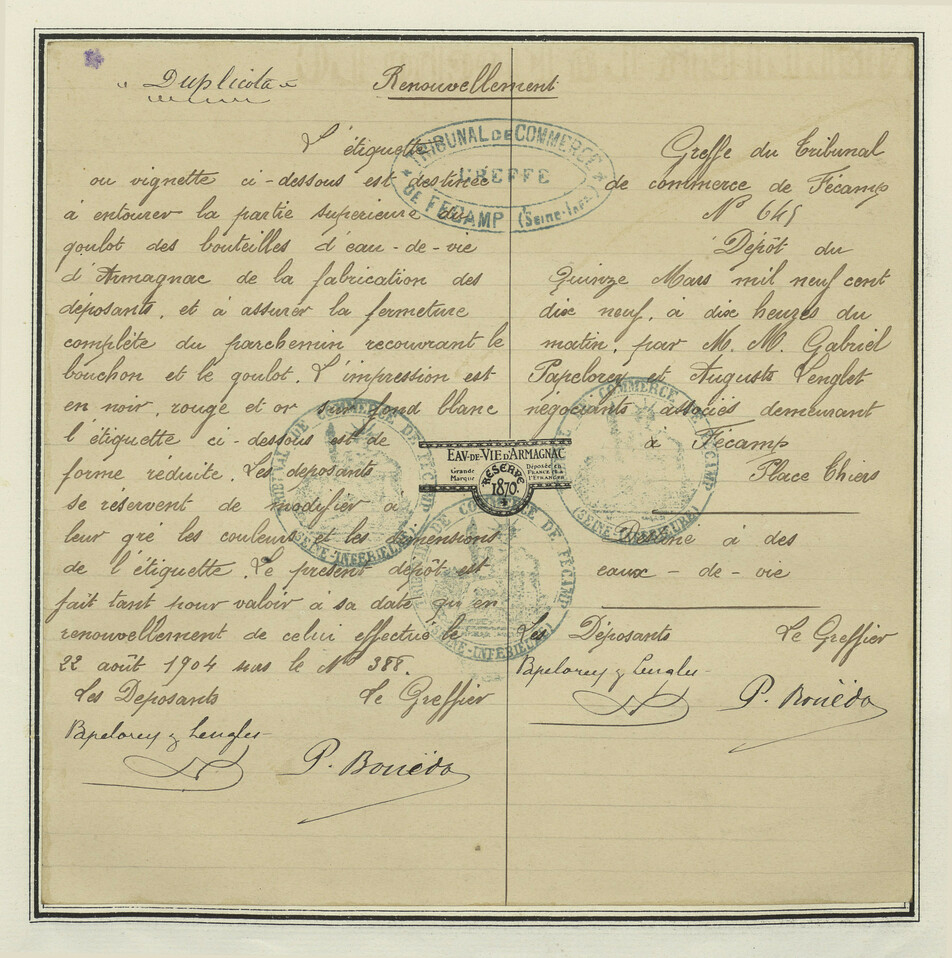 " Duplicata "
Renouvellement
L'étiquette
ou vignette ci-dessous est destinée
à entourer la partie supérieure du
goulot des bouteilles d'eau-de-vie
d'Armagnac de la fabrication des
déposants, et à assurer la fermeture
complète du parchemin recouvrant le
bouchon et le goulot. L'impression est
en noir, rouge et or sur fond blanc
l'étiquette ci-dessous est de
forme réduite. Les déposants
se réservent de modifier à
leur gré les couleurs et les dimensions
de l'étiquette. Le présent dépôt est
fait tant pour valoir à sa date qu'en
renouvellement de celui effectué le
22 août 1904 sous le N° 388.
Les Déposants Le Greffier
Papelorey & Lenglet
P. Bouëda
TRIBUNAL DE COMMERCE
GREFFE
DE FÉCAMP (Seine-Infre)
Greffe du Tribunal
de commerce de Fécamp
N° 645
Dépôt du
Quinze Mars mil neuf cent
dix neuf, à dix heures du
matin, par M. M. Gabriel
Papelorey et Auguste Lenglet
négociants associés demeurant
à Fécamp
Place Thiers
Destiné à des
eaux-de-vie
Les Déposants Le Greffier
Papelorey & Lenglet
P. Bouëda
EAV-DE-VIE D'ARMAGNAC
Grande
Marque
RÉSERVE
1870
Déposée en
FRANCE & à
L'ÉTRANGER
TRIBUNAL DE COMMERCE DE FÉCAMP
(SEINE-INFÉRIEURE)
TRIBUNAL DE COMMERCE DE FÉCAMP
(SEINE-INFÉRIEURE)
TRIBUNAL DE COMMERCE DE FÉCAMP
(SEINE-INFÉRIEURE)